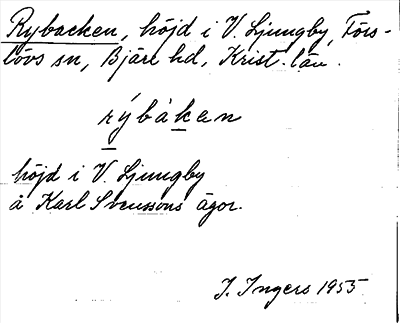 Rybacken, höjd i V. Ljungby, Förs-
lövs sn, Bjäre hd, Krist. län.
rýbàkan
höjd i V. Ljungby
å Karl Svenssons ägor.
I. Ingers 1955